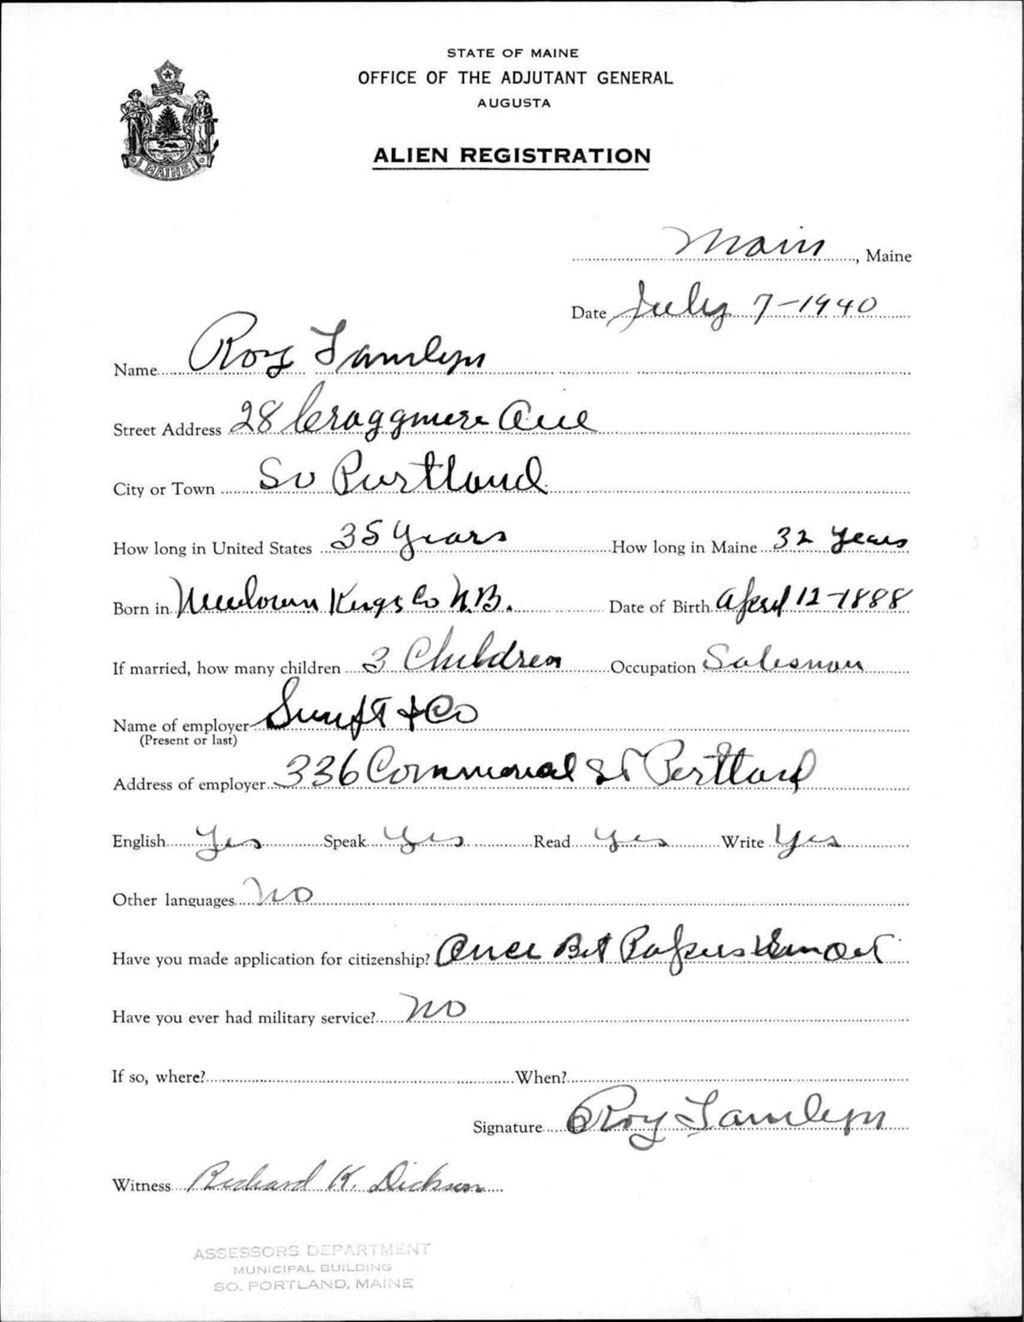 STATE OF MAINE
OFFICE OF THE ADJUTANT GENERAL
AUGUSTA
ALIEN REGISTRATION
MAINE
Main, Maine
Date July 7-1940
Name Roy Tamlyn
Street Address 28 Craggmere Ave
City or Town So Portland
How long in United States 35 Years How long in Maine 32 Years
Born in Kings Co N.B. Date of Birth April 12-1888
If married, how many children 3 Children Occupation Salesman
Name of employer Swift + Co
(Present or last)
Address of employer 336 Commercial St Portland
English Yes Speak Yes Read Yes Write Yes
Other languages No
Have you made application for citizenship? Once But Papers
Have you ever had military service? No
If so, where? When?
Signature Roy Tamlyn
Witness Richard K. Dickson
ASSESSORS DEPARTMENT
MUNICIPAL BUILDING
SO. PORTLAND, MAINE